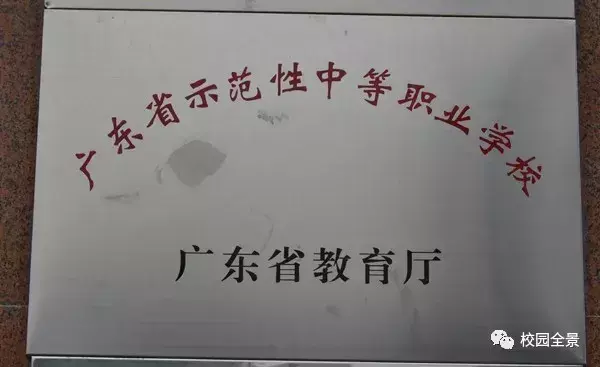 广东省示范性中等职业学校
广东省教育厅
校园全景